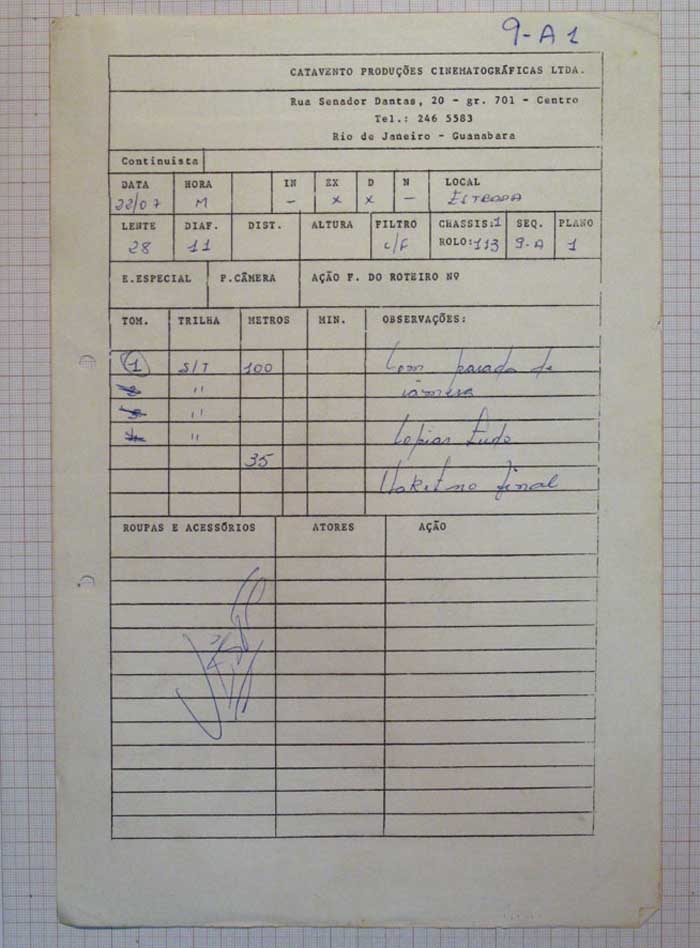 9-A1
CATAVENTO PRODUÇÕES CINEMATOGRÁFICAS LTDA.
Rua Senador Dantas, 20 - gr. 701 - Centro
Tel.: 246 5583
Rio de Janeiro - Guanabara
Continuista
DATA HORA IN EX D N LOCAL
22/07 M - x x - ESTRADA
LENTE DIAF. DIST. ALTURA FILTRO CHASSIS:1 SEQ. PLANO
28 11 c/F ROLO:113 9-A 1
E.ESPECIAL P.CÂMERA AÇÃO F. DO ROTEIRO Nº
TOM. TRILHA METROS MIN. OBSERVAÇÕES:
1 S/T 100 Com parada de
" câmera
"
" Copiar tudo
35
final
ROUPAS E ACESSÓRIOS ATORES AÇÃO